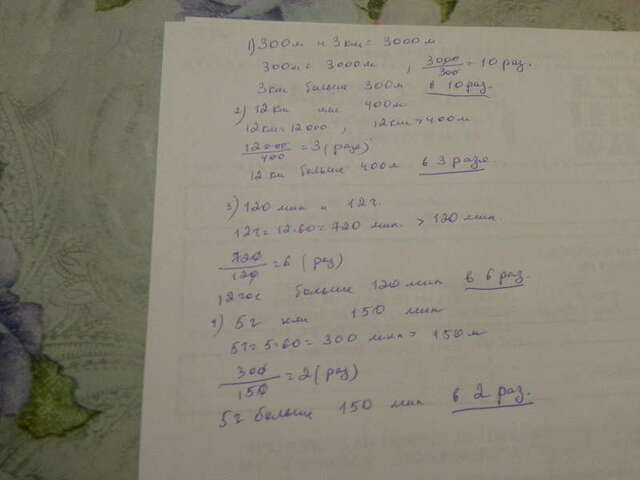 1) 300м и 3км = 3000м
300м = 3000м , 3000/300 = 10 раз.
3км больше 300м в 10 раз.
2) 12км или 400м
12км = 12000 , 12км > 400м
12000/400 = 3 (раза)
12км больше 400м в 3 раза
3) 120 мин и 12г.
12г = 12·60 = 720 мин. > 120 мин.
720/120 = 6 (раз)
12час больше 120 мин в 6 раз.
4) 5г или 150 мин
5г = 5·60 = 300 мин > 150м
300/150 = 2 (раз)
5г больше 150 мин в 2 раз.